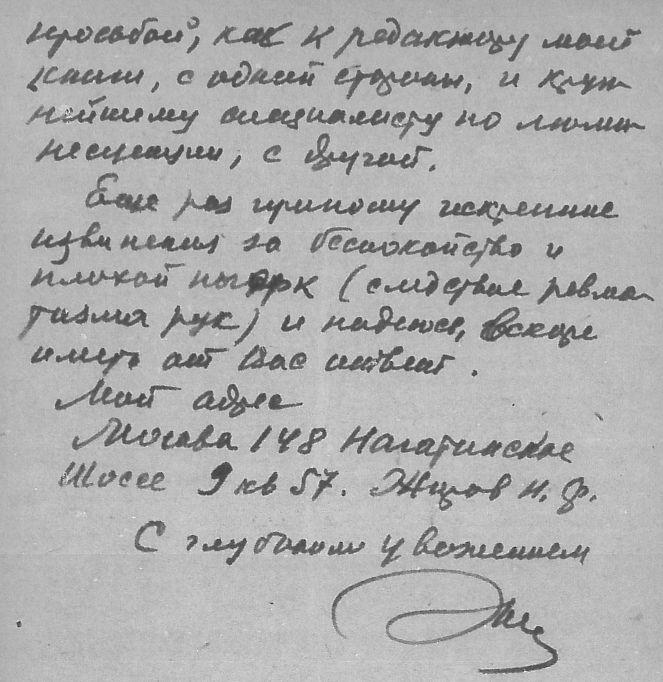 просьбой, как к редактору моей
книги, с одной стороны, и круп-
нейшему специалисту по люми-
несценции, с другой.
Еще раз приношу искренние
извинения за беспокойство и
плохой почерк (следствие ревма-
тизма рук) и надеюсь, вскоре
иметь от Вас ответ.
Мой адрес
Москва 148 Нагатинское
Шоссе 9 кв 57. Жиров Н. Ф.
С глубоким уважением